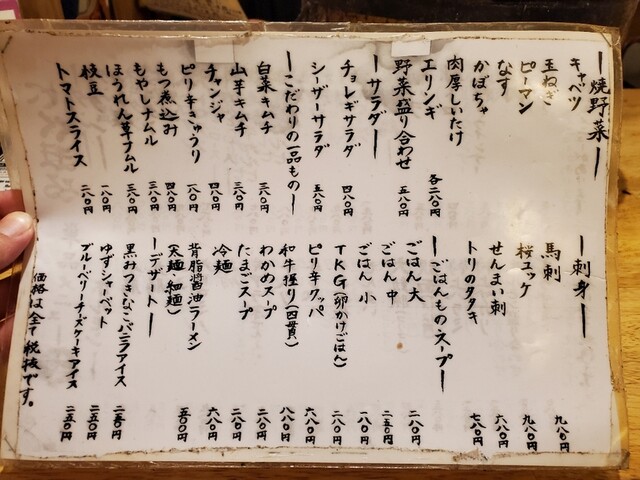 ー焼野菜ー
キャベツ
玉ねぎ
ピーマン
なす
かぼちゃ
肉厚しいたけ
エリンギ 各二八〇円
野菜盛り合わせ 五八〇円
ーサラダー
チョレギサラダ 四八〇円
シーザーサラダ 五八〇円
ーこだわりの一品ものー
白菜キムチ 三八〇円
山芋キムチ 三八〇円
チャンジャ 四八〇円
ピリ辛きゅうり 一八〇円
もつ煮込み 四八〇円
もやしナムル 三八〇円
ほうれん草ナムル 三八〇円
枝豆 一八〇円
トマトスライス 二八〇円
ー刺身ー
馬刺 九八〇円
桜ユッケ 九八〇円
せんまい刺 六八〇円
トリのタタキ 七八〇円
ーごはんもの・スープー
ごはん 大 二八〇円
ごはん 中 二五〇円
ごはん 小 一八〇円
TKG(卵かけごはん) 二八〇円
ピリ辛クッパ 六八〇円
和牛握り(四貫) 八八〇円
わかめスープ 二八〇円
たまごスープ 二八〇円
冷麺 六八〇円
背脂醤油ラーメン 五〇〇円
(太麺・細麺)
ーデザートー
黒みつきなこバニラアイス 二五〇円
ゆずシャーベット 二五〇円
ブルーベリーチーズケーキアイス 二五〇円
価格は全て税抜です。